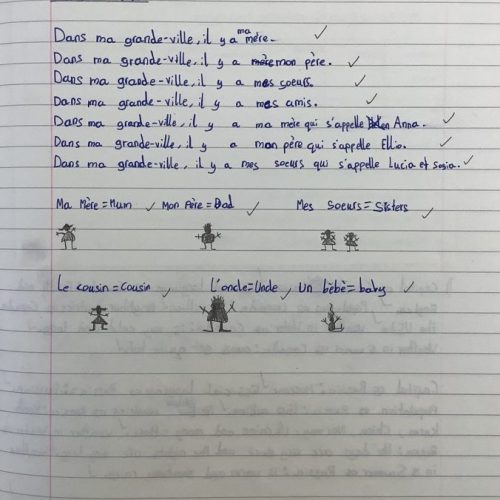 Dans ma grande-ville, il y a ma mère.
Dans ma grande-ville, il y a mon père.
Dans ma grande-ville, il y a mes soeurs.
Dans ma grande-ville, il y a mes amis.
Dans ma grande-ville, il y a ma mère qui s'appelle Anna.
Dans ma grande-ville, il y a mon père qui s'appelle Ellio.
Dans ma grande-ville, il y a mes soeurs qui s'appelle Lucia et Sonia.
Ma Mère = Mum Mon Père = Dad Mes Soeurs = Sisters
Le cousin = Cousin L'oncle = Uncle Un bèbè = baby